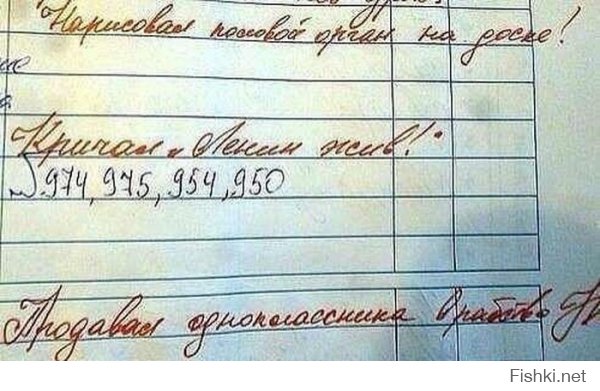 Нарисовал половой орган на доске!
Кричал „Ленин жив!“
974, 975, 954, 950
Продавал одноклассника в рабство
Fishki.net